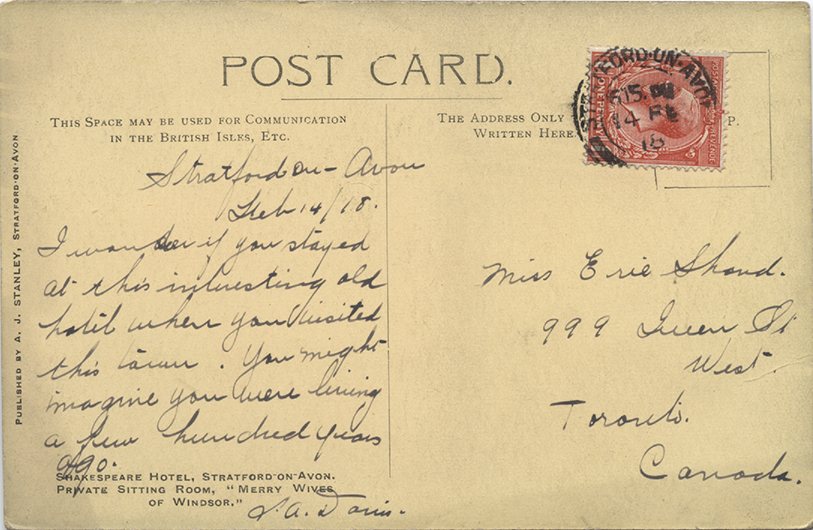 POST CARD.
THIS SPACE MAY BE USED FOR COMMUNICATION
IN THE BRITISH ISLES, ETC.
THE ADDRESS ONLY
WRITTEN HERE
P.
STRATFORD-ON-AVON
14 FE
18
Stratford on-Avon
Feb 14/18.
I wonder if you stayed
at this interesting old
hotel when you visited
this town. You might
imagine you were living
a few hundred years
ago.
SHAKESPEARE HOTEL, STRATFORD-ON-AVON.
PRIVATE SITTING ROOM, "MERRY WIVES
OF WINDSOR,"
Miss Erie
999 Queen St
West.
Toronto.
Canada.
PUBLISHED BY A. J. STANLEY, STRATFORD-ON-AVON